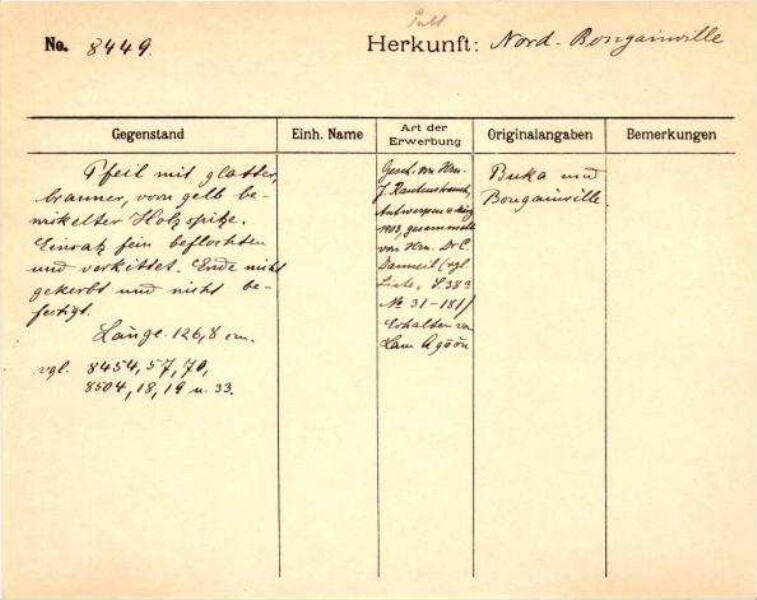 No. 8449.
Herkunft: Nord-Bougainville
Gegenstand
Einh. Name
Art der Erwerbung
Originalangaben
Bemerkungen
Pfeil mit glatter,
brauner, vorn gelb be-
wickelter Holzspitze.
Einsatz fein beflochten
und verkittet. Ende nicht
gekerbt und nicht be-
festigt.
Länge 126,8 cm.
vgl. 8454, 57, 70,
8504, 18, 19 u. 33.
Gesch. von Hrn.
J. Rautenstrauch,
Antwerpen März
1903, gesammelt
von Hrn. Dr C.
Danneil (vgl.
Liste, S. 38
No 31-181)
Erhalten von
Buka und
Bougainville.